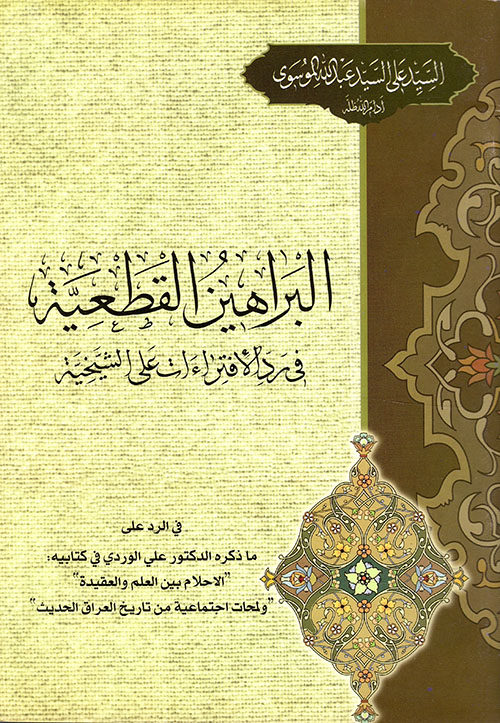 السيد علي السيد عبدالله الموسوي
ادام الله ظله
البراهين القطعية
في رد الافتراءات على الشيخية
في الرد على
ما ذكره الدكتور علي الوردي في كتابيه:
"الاحلام بين العلم والعقيدة"
"ولمحات اجتماعية من تاريخ العراق الحديث"